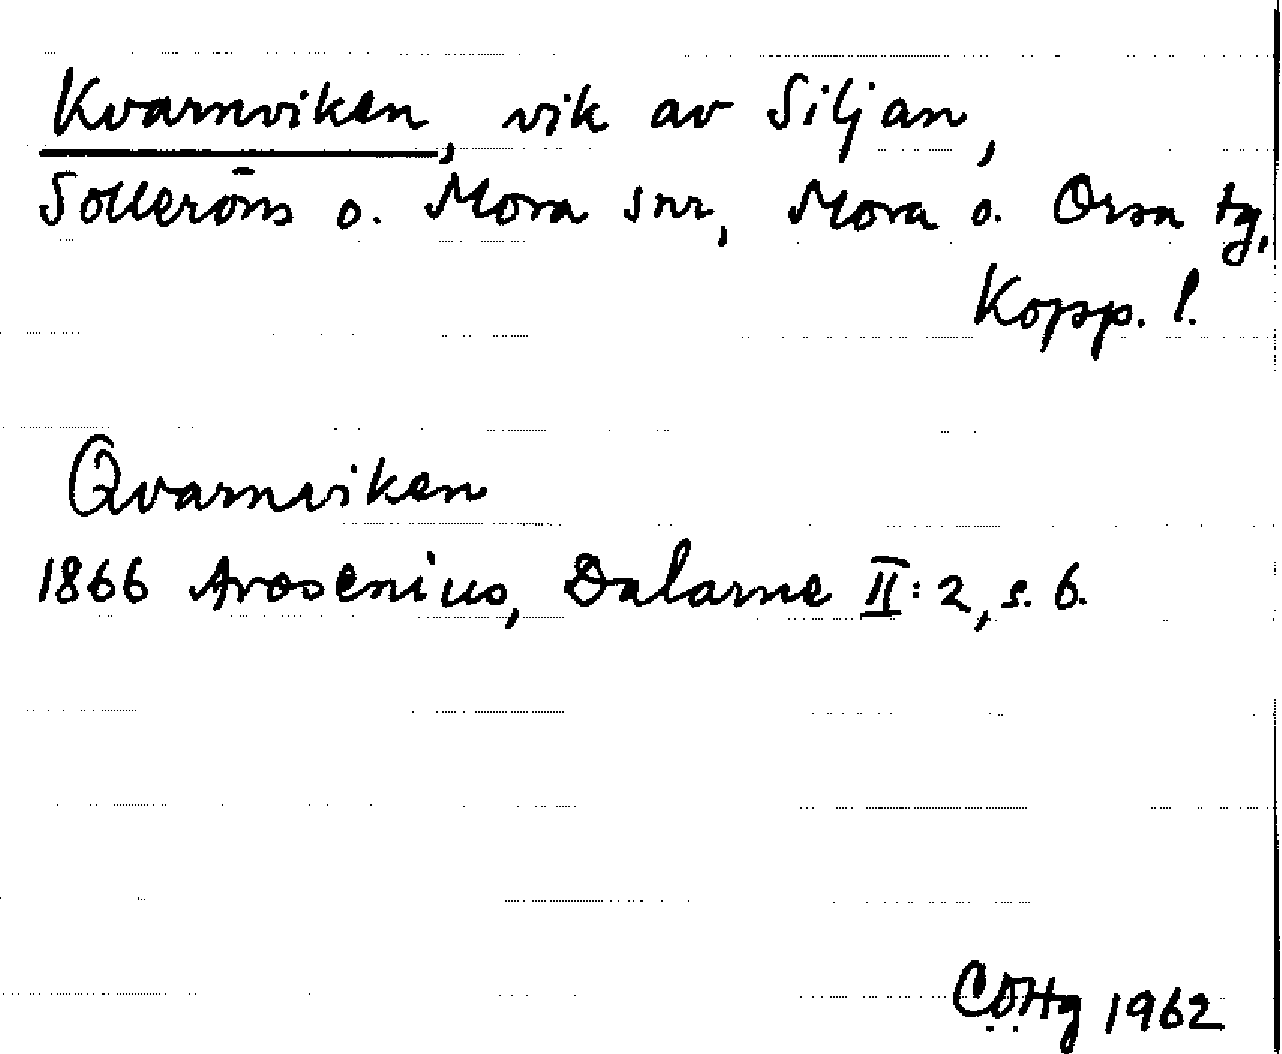 Kvarnviken, vik av Siljan,
Solleröns o. Mora snr, Mora o. Orsa tg,
Kopp. l.
Qvarnviken
1866 Arosenius, Dalarne II:2, s. 6.
CÖHg 1962